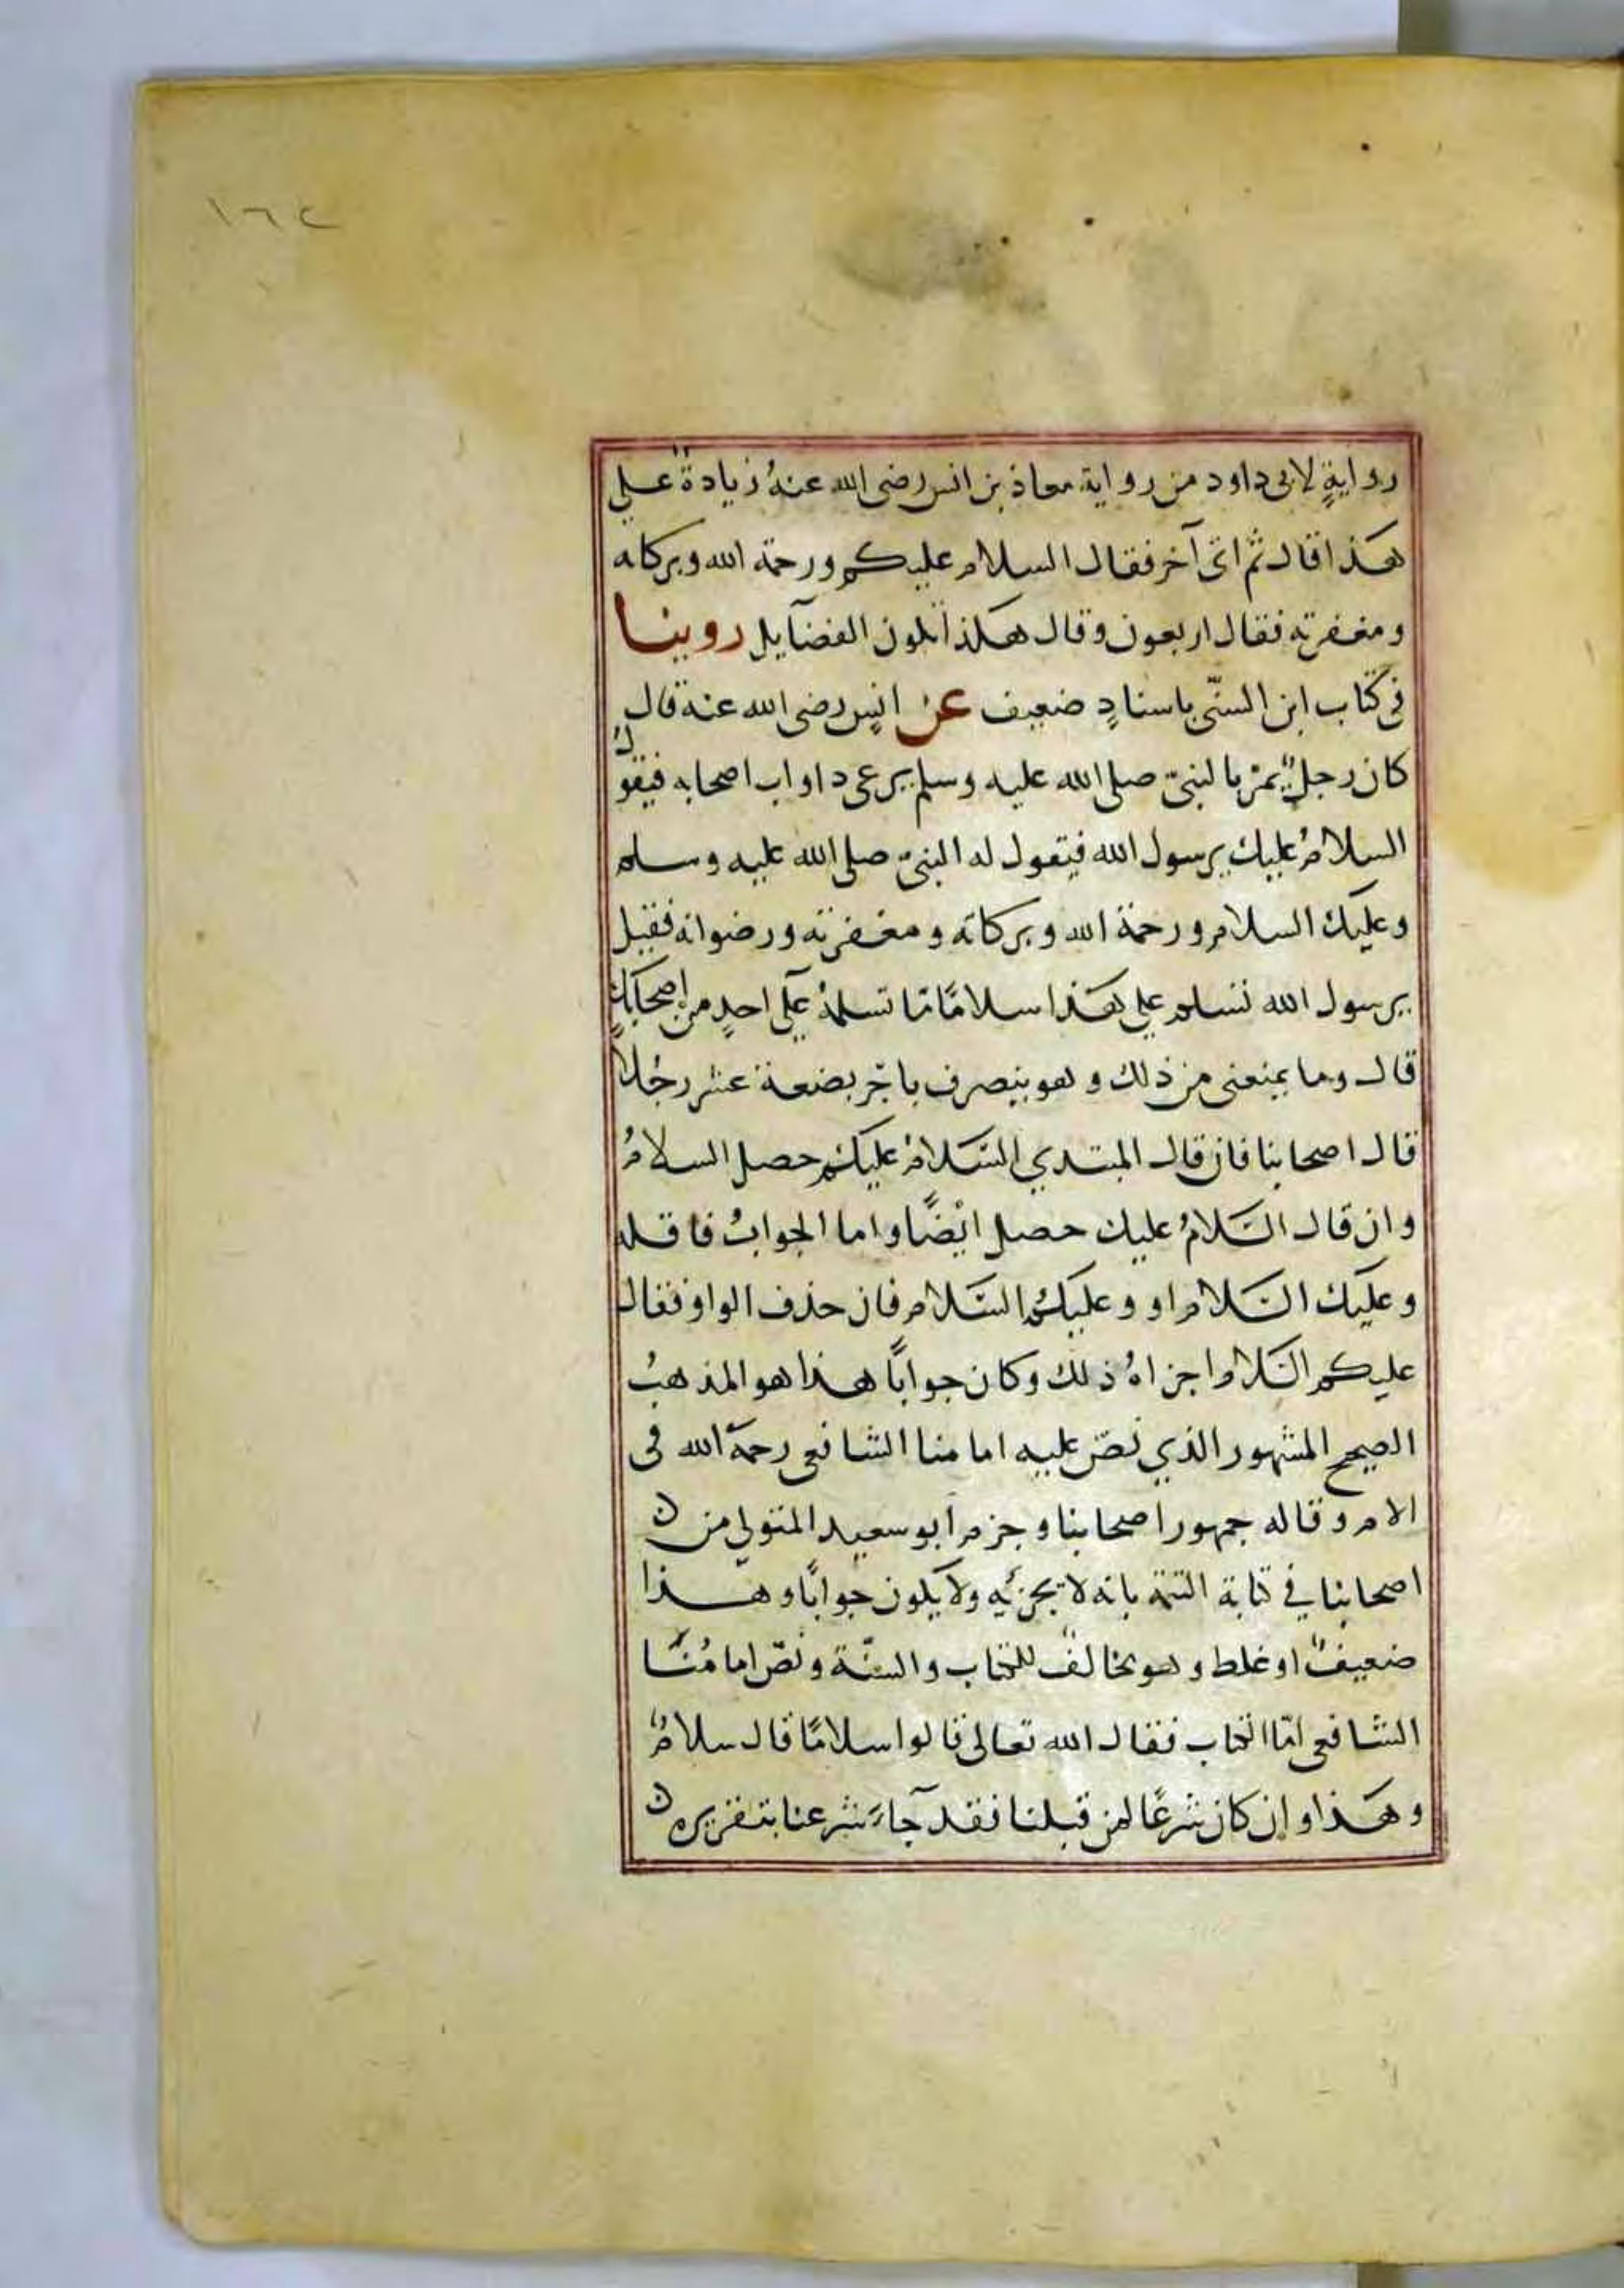 ١٦٢
روايةٍ لابى داود من رواية معاذ بن انس رضى الله عنهُ زيادةٌ على
هَذا قال ثم اتى آخر فقال السلام عليكم ورحمة الله وبركاته
ومغفرته فقال اربعون وقال هكذا تكون الفضآيل روينا
فى كتاب ابن السنّى باسنادٍ ضعيف عن انسٍ رضى الله عنه قال
كان رجلٌ يمرّ بالنبىّ صلى الله عليه وسلم يرعى دواب اصحابه فيقولُ
السلامُ عليك يرسول الله فيقول له النبىّ صلى الله عليه وسلم
وعليك السلام ورحمة الله وبركاته ومغفرته ورضوانه فقيل
يرسول الله تسلم على هَذا سلامًا مّا تسلمهُ علَى احدٍ من اصحابك
قال وما يمنعنى من ذلك وهو ينصرف باجر بضعة عشر رجُلًا
قال اصحابنا فان قال المبتدي السَلامُ عليكم حصل السلامُ
وان قال السَلامُ عليك حصل ايْضًا واما الجوابُ فاقله
وعليك السَلام او وعليكُم السَلام فان حذف الواو فقال
عليكم السَلام اجزاهُ ذلك وكان جوابًا هذا هو المذهبُ
الصحيح المشهور الذي نصّ عليه امامنا الشافعى رحمَه الله فى
الام وقاله جمهور اصحابنا وجزم ابو سعيد المتولى من
اصحابنا في كتابه التتمة بانه لا يجزئيه ولا يكون جوابًا وهَذا
ضعيفٌ او غلط وهو مخالفٌ للكتاب والسنّة ونصّ امامُنَا
الشافعى امّا الكتاب فقال الله تعالى قالوا سلامًا قال سلامٌ
وهَذا وإن كان شرعًا لمن قبلنا فقد جآءَ شرعنا بتقريره